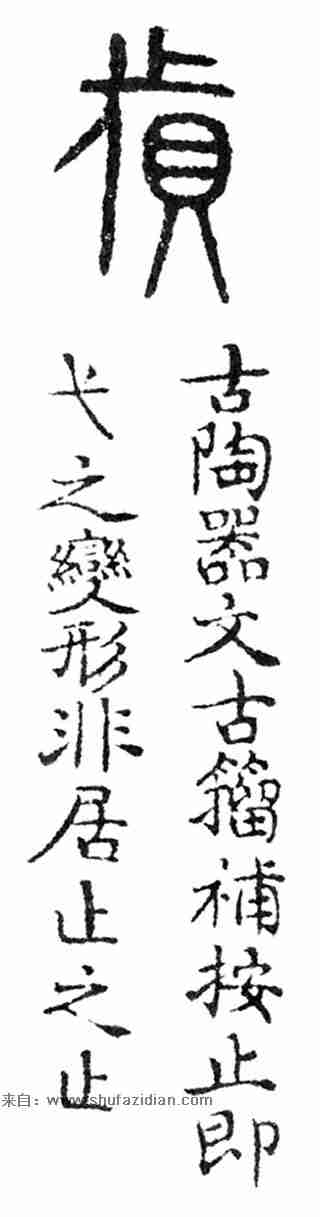 古陶器文古籀補按止即
弋之變形非居止之止
来自：www.shufazidian.com